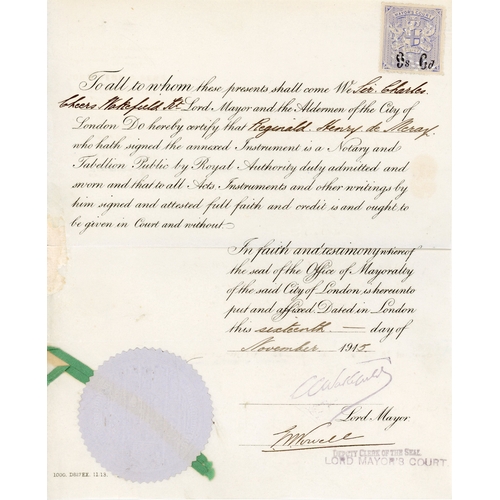 MAYOR'S COURT
To all to whom these presents shall come We Sir Charles
Cheers Wakefield Kt. Lord Mayor and the Aldermen of the City of
London Do hereby certify that Reginald Henry de Meray
who hath signed the annexed Instrument is a Notary and
Tabellion Public by Royal Authority duly admitted and
sworn and that to all Acts Instruments and other writings by
him signed and attested full faith and credit is and ought to
be given in Court and without.
In faith and testimony whereof
the seal of the Office of Mayoralty
of the said City of London, is hereunto
put and affixed. Dated in London
this sixteenth — day of
November 1915.
CCWakefield
Lord Mayor.
DEPUTY CLERK OF THE SEAL
LORD MAYOR'S COURT
1000. 11.13.